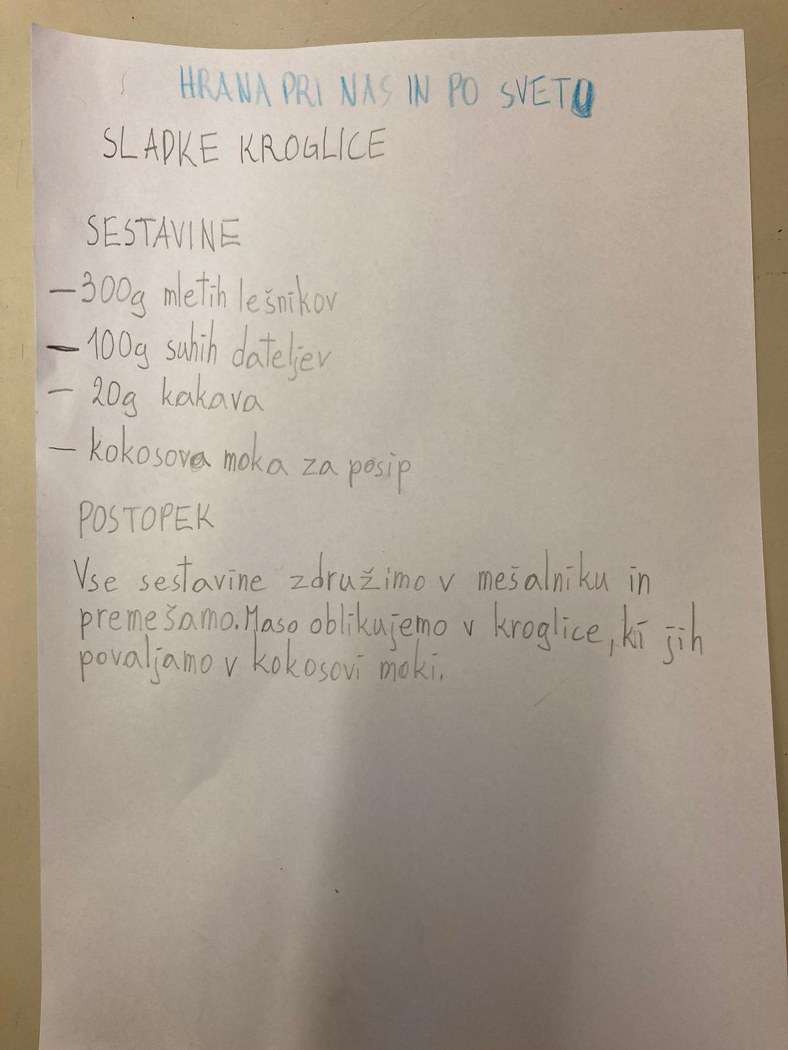 HRANA PRI NAS IN PO SVETU
SLADKE KROGLICE
SESTAVINE
- 300g mletih lešnikov
- 100g suhih dateljev
- 20g kakava
- kokosova moka za posip
POSTOPEK
Vse sestavine združimo v mešalniku in
premešamo. Maso oblikujemo v kroglice, ki jih
povaljamo v kokosovi moki.